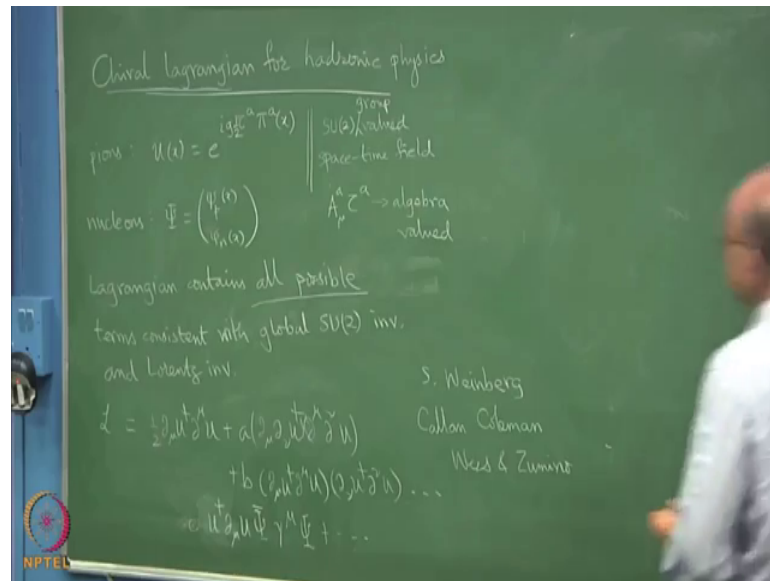 Chiral Lagrangian for hadronic physics
pions: U(x) = e^{ig τ^a/2 π^a(x)}
group
SU(2) valued
space-time field
A^a_μ τ^a → algebra
valued
nucleons: Ψ = (ψ_p(x)
ψ_n(x))
Lagrangian contains all possible
terms consistent with global SU(2) inv.
and Lorentz inv.
S. Weinberg
Callan Coleman
Wess & Zumino
L = 1/2 ∂_μ U† ∂^μ U + a(∂_μ ∂_ν U† ∂^μ ∂^ν U)
+ b (∂_μ U† ∂^μ U)(∂_ν U† ∂^ν U) ...
U† ∂_μ U Ψ̄ γ^μ Ψ + ...
NPTEL